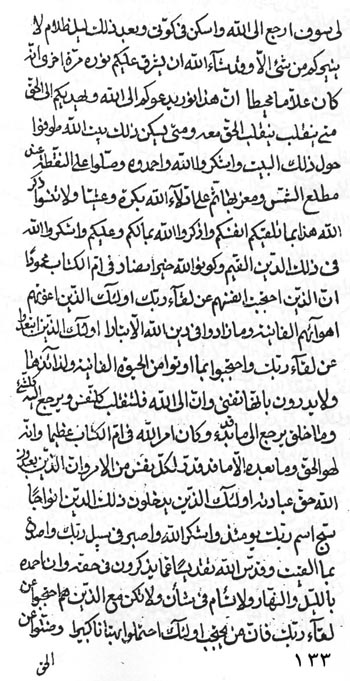 لى سوف ارجع الى الله واسكن فى كوتى وبعد ذلك ليل ظلام لا
ينجيكم من شئ الا وقد شآء الله ان يشرق عليكم نوره مرة اخر وانه
كان علاما محيطا ان هذا نور يدعوكم الى الله ويهديكم الى الحق
متى ينقلب ينقلب الحق معه ومتى يسكن ذلك بيت الله طوفوا
حول ذلك البيت واشكروا الله واحمدوه وصلوا على النقطة عن
مطلع الشمس ومغربها ثم على ادلآء الله بكرة وعشيا ولا تنسوا ذكر
الله هذا بما تلقيكم انفسكم واذكروا الله بما لكم وعليكم واشكروا الله
فى ذلك الدين القيم وكونوا لله خير انصار فى ام الكتاب محمودا
ان الذين احتجبت انفسهم عن لقآء ربك اولئك الذين اغوتهم
اهوآئهم الفانية وما زادوا فى دين الله الا تبارا اولئك الذين
عن لقآء ربك واحتجبوا بما اوتوا من الحيوة الفانية ولذائذها
ولا يدرون بانها تفنى وان الى الله فلتنقلب كل نفس ويرجع اليه كلشئ
وما خلق يرجع الى ما بدء وكان امر الله فى ام الكتاب عظيما وانه
لهو الحق وما بعده الا ما قد قدر لكل نفس من الامر وان الذين
الله حق عبادته اولئك الذين يدخلون ذلك الدين افواجا
سبح اسم ربك يومئذ واشكر الله واصبر فى سبيل ربك وارض
بما القيت وقدس الله تقديسا عما يذكرون فى حقه وان احمده
بالليل والنهار ولا تسئم فى شأن ولا تكن مع الذين هم احتجبوا عن
لقآء ربك فان من يحتجب اولئك احتملوا بهتانا كبيرا وضلوا عن
١٣٣ الحق